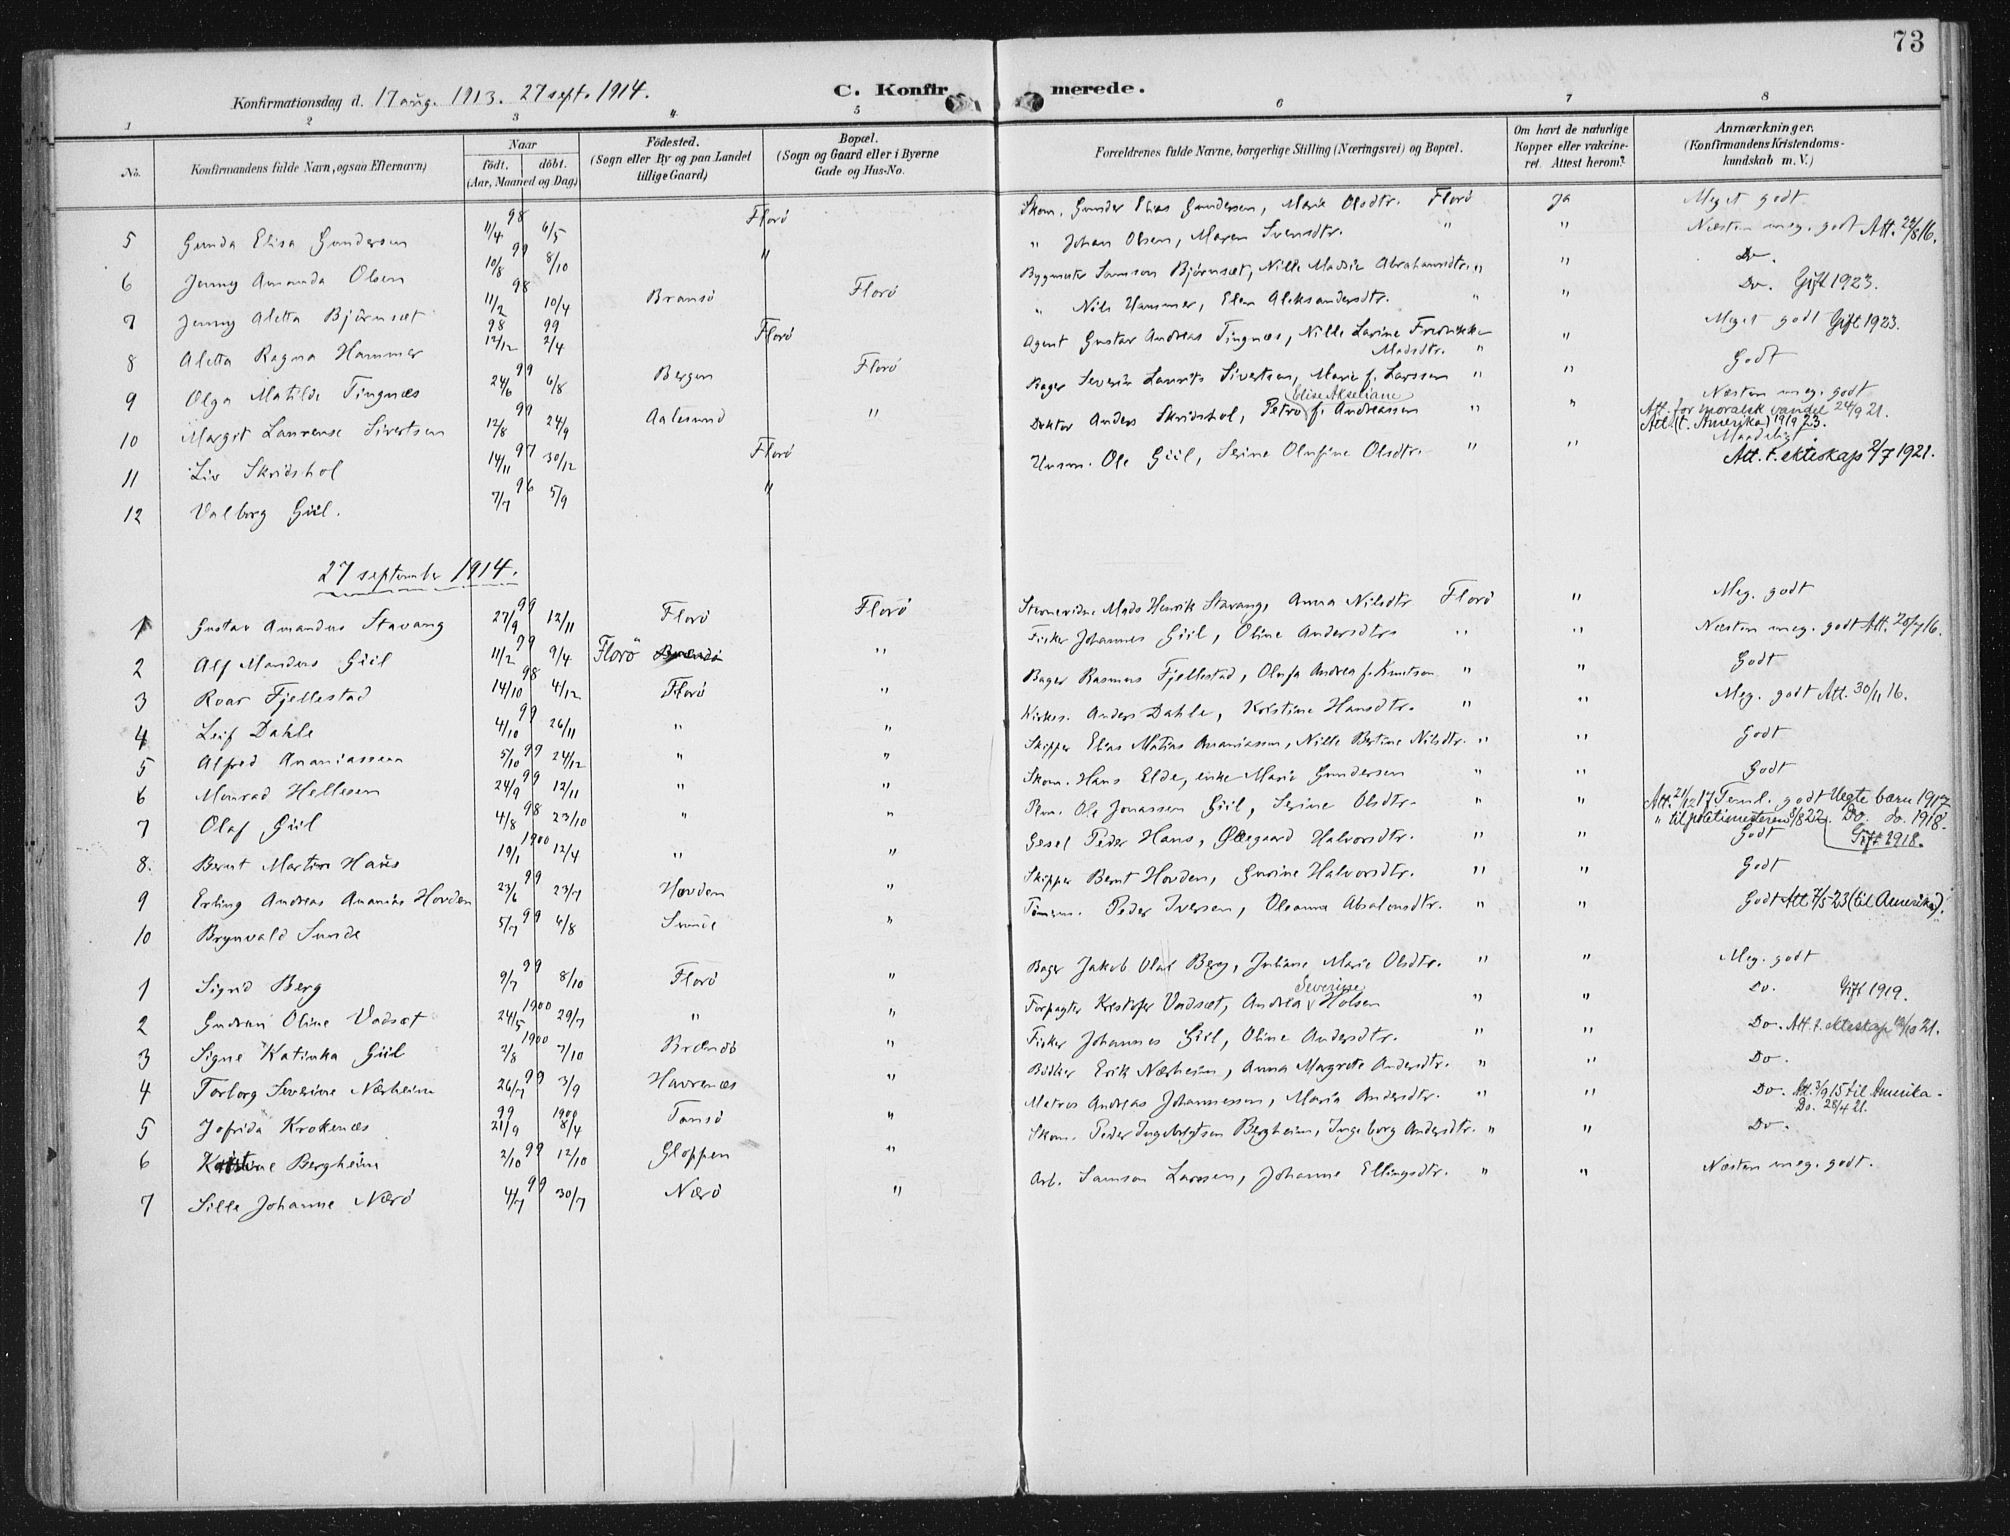 73
Konfirmationsdag d. 17 aug. 1913. 27 sept. 1914. C. Konfirmerede.
1 2 3 4 5 6 7 8
No. Konfirmandens fulde Navn, ogsaa Efternavn) Naar födt. döbt. (Aar, Maaned og Dag) Födested. (Sogn eller By og paa Landet tillige Gaard) Bopæl. (Sogn og Gaard eller i Byerne Gade og Hus-No. Forældrenes fulde Navne, borgerlige Stilling (Næringsvei) og Bopæl. Om havt de naturlige Kopper eller vakcineret. Attest herom? Anmærkninger. (Konfirmandens Kristendomskundskab m. V.)
5 Gunda Elisa Gundersen 98 11/4 6/5 Florö Skom. Gunder Elias Gundersen, Marie Olsdtr. Florö ja Meget godt
6 Jenny Amanda Olsen 99 10/8 8/10 " " Johan Olsen, Maren Svensdtr. " " Næsten meg. godt Att. 24/8 16.
7 Jenny Aletta Björnsæt 98 11/2 10/4 Bransö Florö Bygmester Samson Björnsæt, Nille Madsie Abrahamsdtr. " " Do.
8 Aletta Ragna Hammer 98 12/12 99 2/4 Florö " Nils Hammer, Elen Aleksandersdtr. " " Do. Gift 1923.
9 Olga Matilde Tingnæs 99 24/6 6/8 Bergen Florö Agent Gustav Andreas Tingnæs, Nille Larine Fredrikke Madsdtr. " " Meget godt Gift 1923.
10 Margit Laurense Sivertsen 99 12/8 24/9 Aalesund " Bager Severin Laurits Sivertsen, Marie f. Larssen " " Godt
11 Liv Skridshol 97 14/11 30/12 Florö Doktor Anders Skridshol, Petro Elise Akseliane f. Andreassen " " Næsten meg. godt
Att. for moralsk vandel 24/9 21.
Att. (t. Amerika) 19/9 23.
12 Valborg Giil. 96 7/7 5/9 " Husm. Ole Giil, Serine Olufine Olsdtr. " " Maadeligt
Att. t. ekteskap 2/7 1921.
27 september 1914.
1 Gustav Amandus Stavang 99 27/9 12/11 Florö Florö Mads Henrik Stavang, Anna Nilsdtr Florö " Meg. godt
2 Alf Mandus Giil 99 11/2 9/4 Florö " Fisker Johannes Giil, Oline Andersdtr. " " Næsten meg. godt Att. 20/7 16.
3 Roar Fjellestad 98 14/10 4/12 Florö " Bager Rasmus Fjellestad, Olufa Andrea f. Knutsen " " Godt
4 Leif Dahle 99 4/10 26/11 " " Kirkes. Anders Dahle, Kristine Hansdtr. " " Meg. godt Att. 30/11 16.
5 Alfred Ananiassen 99 5/10 24/12 " " Skipper Elias Matias Ananiassen, Nille Bertine Nilsdtr. " " Godt
6 Monrad Hellesen 99 24/9 12/11 " " Skom. Hans Elde, enke Marie Gundersen " " Godt
7 Olaf Giil 98 4/8 23/10 " " Plm. Ole Jonassen Giil, Serine Olsdtr. " " Att. 21/12 17 Teml. godt Uegte barn 1917
" til politimesteren 8/8 22. Do. do. 1918. Gift 1918.
8. Bernt Martin Haus 1900 19/1 12/4 " " Gesel Peder Hans, Ølegaard Halvorsdtr. " " Godt
9 Erling Andreas Ananias Hovden 99 23/6 23/7 Hovden " Skipper Bernt Hovden, Gurine Halvorsdtr. " " Godt
10 Brynvald Sunde 99 5/7 6/8 Sunde " Tömm. Peder Iversen, Oleanna Absalonsdtr. " " Godt Att 7/5-23 (til Amerika).
1 Sigrid Berg 99 9/7 8/10 Florö " Bager Jakob Olai Berg, Juliane Marie Olsdtr. " " Meg. godt
2 Gudrun Oline Vadsæt 1900 24/5 29/7 " " Forpagter Kristofer Vadsæt, Andrea Severine Holsen " " Do. Gift 1919.
3 Signe Katinka Giil 1900 2/8 7/10 Brændö " Fisker Johannes Giil, Oline Andersdtr. " " Do. Att. t. ekteskap 12/10 21.
4 Torborg Severine Nærheim 99 26/7 3/9 Havrenæs " Bödker Erik Nærheim, Anna Magrete Andersdtr. " " Do.
5 Jofrida Krokenæs 99 21/9 1900 8/4 Tansö " Matros Andreas Johannessen, Maria Andersdtr. " " Do. Att. 3/9 15 til Amerika.
Do. 28/4 21.
6 Kristine Bergheim 99 2/10 12/10 Gloppen " Skom. Peder Ingebrigtsen Bergheim, Ingeborg Andersdtr. " " Do.
7 Sille Johanne Nærö 99 4/7 30/7 Nærö " Arb. Samson Larssen, Johanne Ellingsdtr. " " Næsten meg. godt.